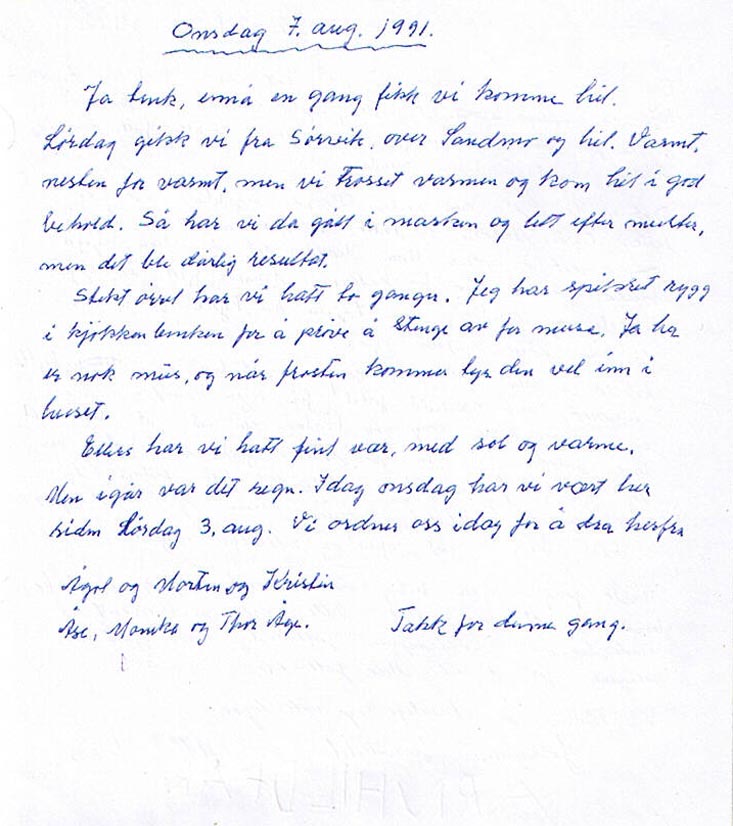 Onsdag 7. aug. 1991.
Ja tenk, ennå en gang fikk vi komme hit.
Lørdag gikk vi fra Sørvik, over Sandmo og hit. Varmt,
nesten for varmt, men vi trosset varmen og kom hit i god
behold. Så har vi da gått i marken og lett efter multer,
men det ble dårlig resultat.
Stekt ørret har vi hatt to ganger. Jeg har spikret rygg
i kjøkkenbenken for å prøve å stenge av for musa. Ja her
er nok mus, og når frosten kommer tyr den vel inn i
huset.
Ellers har vi hatt fint vær, med sol og varme.
Men igår var det regn. Idag onsdag har vi vært her
siden Lørdag 3. aug. Vi ordner oss idag for å dra herfra
og Morten og Kristin
Åse, Monika og Thor Åge. Takk for denne gang.